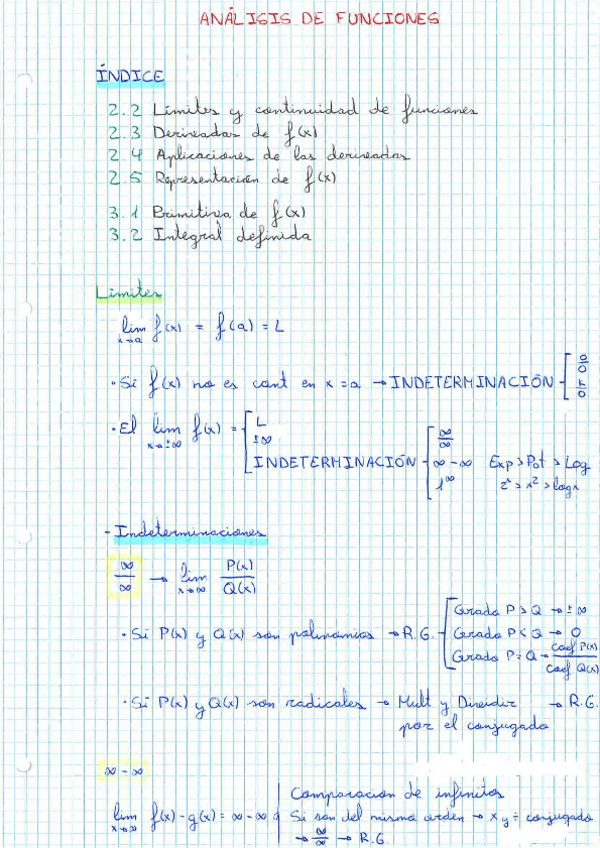 ANÁLISIS DE FUNCIONES
ÍNDICE
2.2 Límites y continuidad de funciones
2.3 Derivadas de f(x)
2.4 Aplicaciones de las derivadas
2.5 Representación de f(x)
3.1 Primitiva de f(x)
3.2 Integral definida
Límites
lim x→a f(x) = f(a) = L
· Si f(x) no es cont en x=a → INDETERMINACIÓN [ 0/0 k/0
· El lim x→±∞ f(x) = [ L ±∞ INDETERMINACIÓN [ ∞/∞ ∞-∞ 1^∞
Exp > Pot > Log
2^x > x^2 > log x
- Indeterminaciones
∞/∞ → lim x→∞ P(x)/Q(x)
· Si P(x) y Q(x) son polinomios → R.G. [ Grado P > Q → ±∞
Grado P < Q → 0
Grado P = Q → coef P(x)/coef Q(x)
· Si P(x) y Q(x) son radicales → Mult y Dividir por el conjugado → R.G.
∞ - ∞
lim x→∞ f(x) - g(x) = ∞ - ∞
Comparación de infinitos
Si son del mismo orden → x y ÷ conjugado
→ ∞/∞ → R.G.